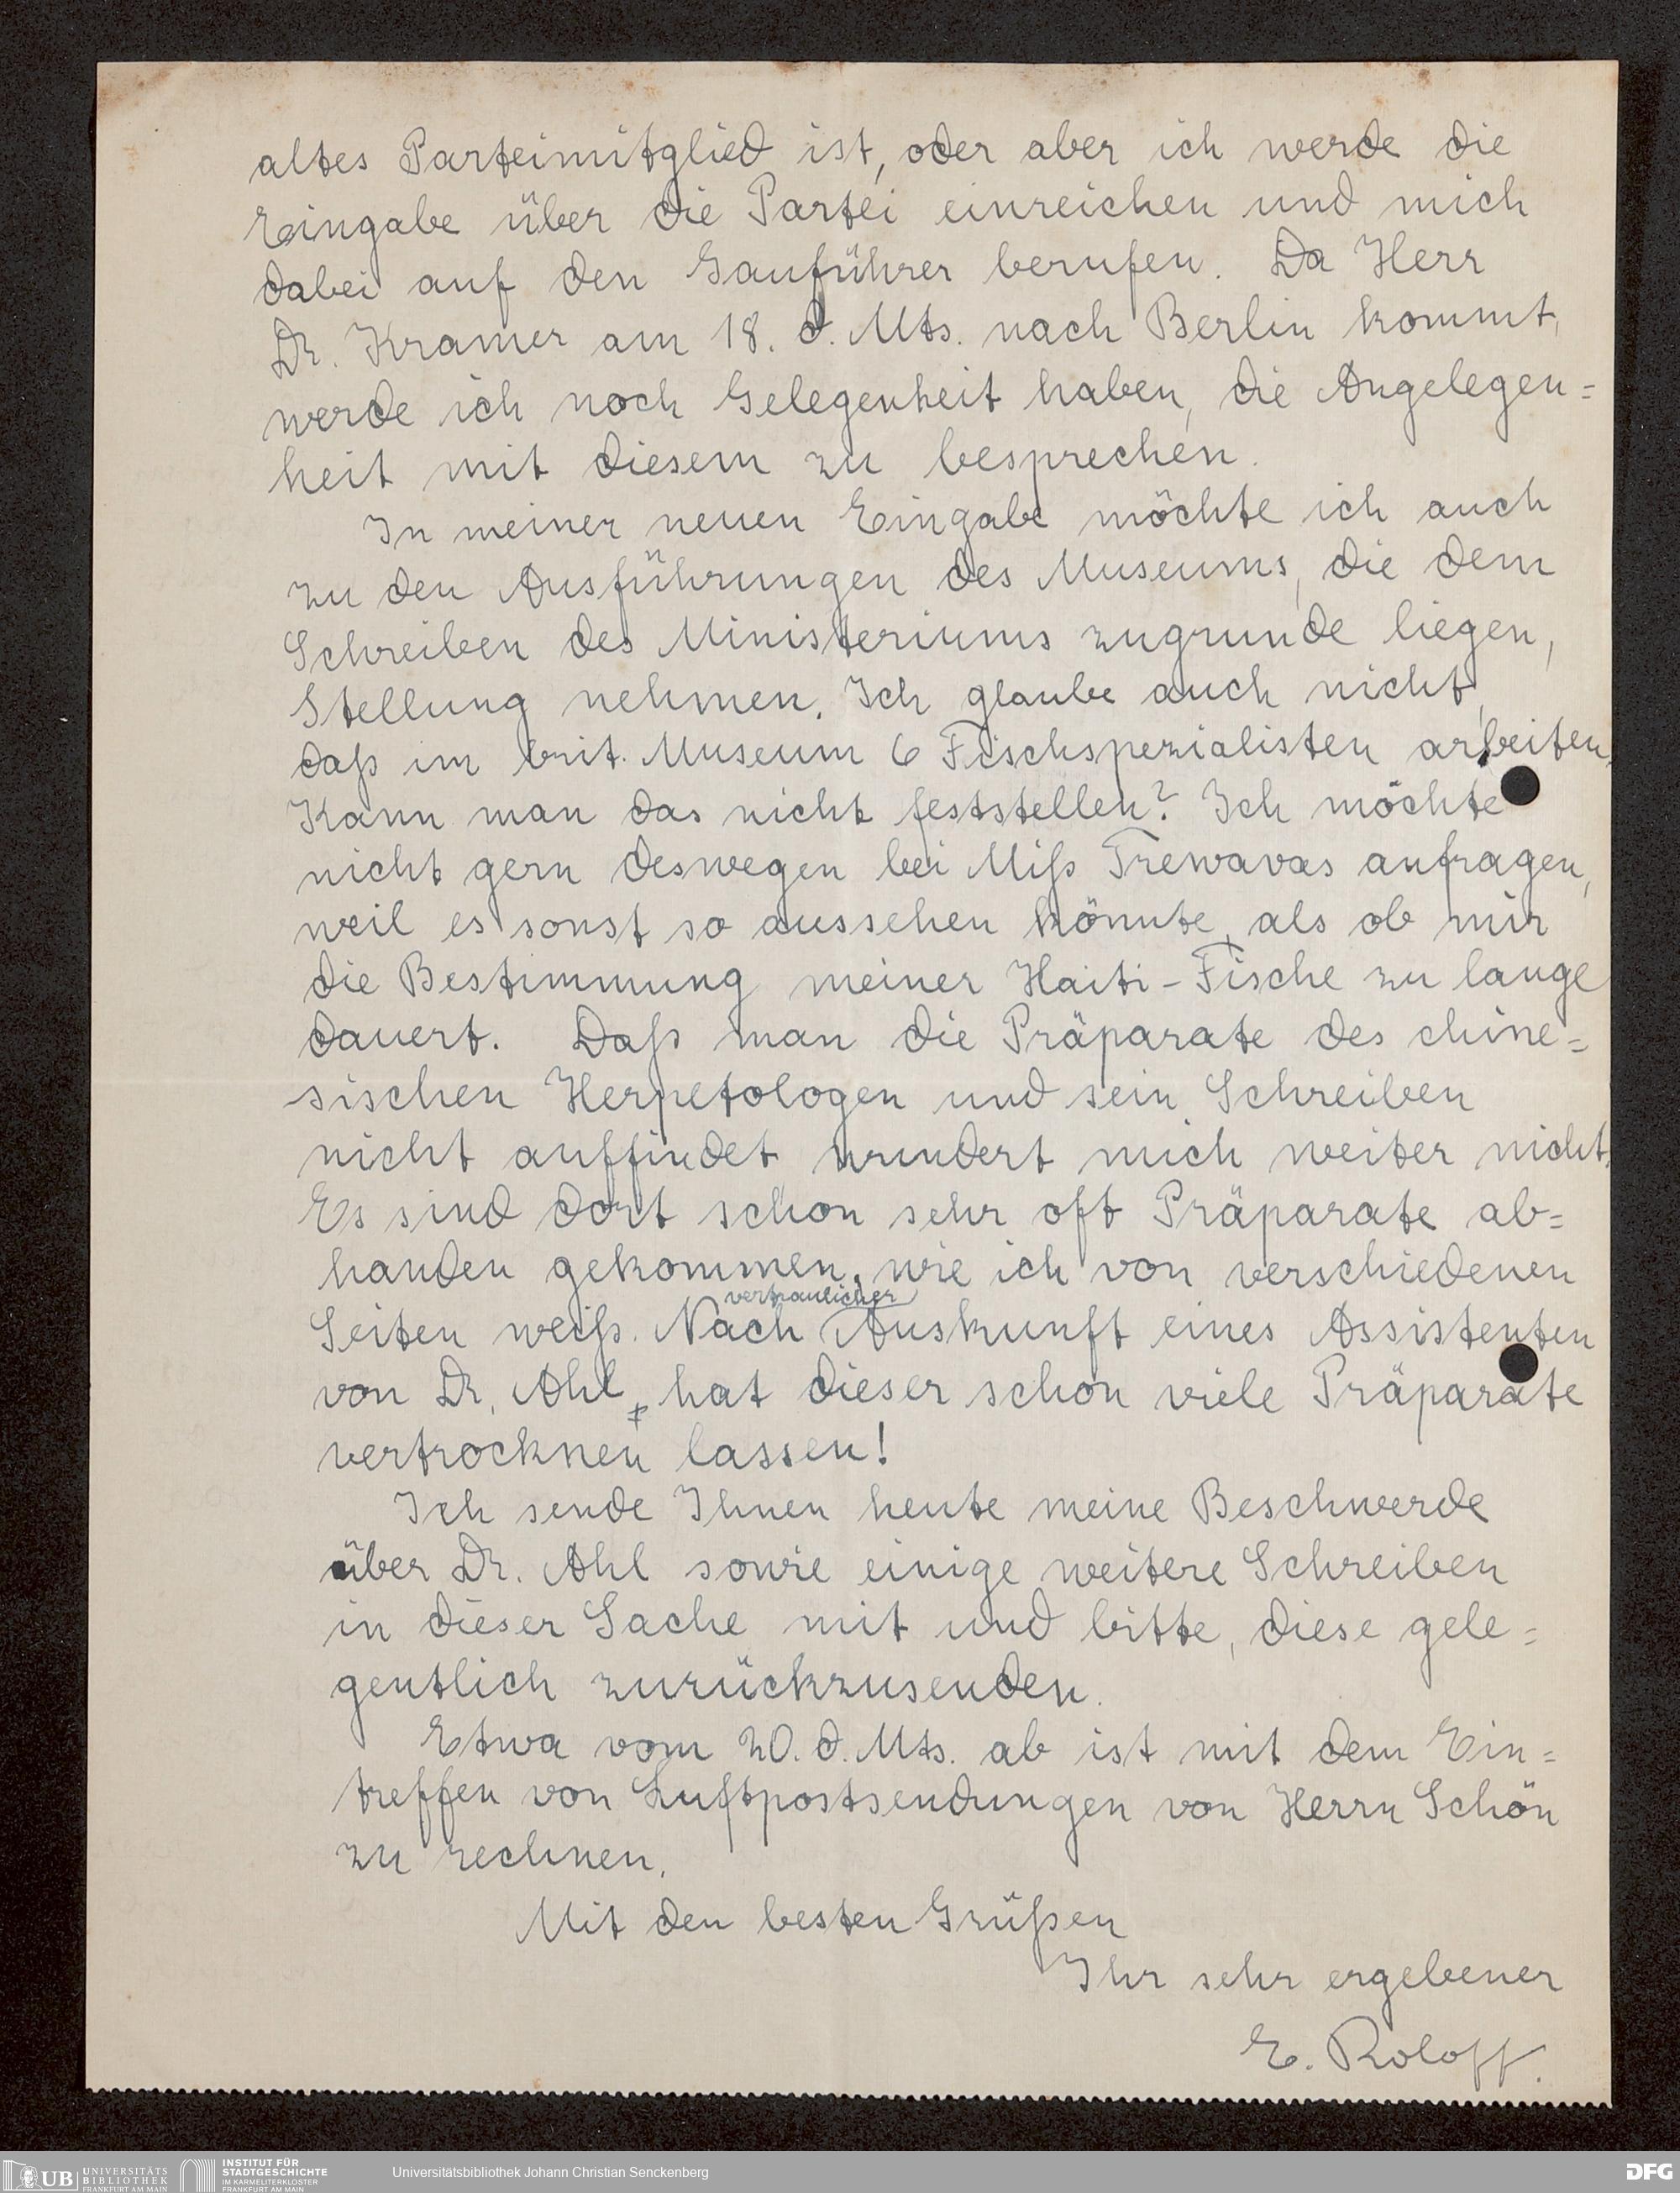 altes Parteimitglied ist, oder aber ich werde die
Eingabe über die Partei einreichen und mich
dabei auf den Gauführer berufen. Da Herr
Dr. Kramer am 18. d. Mts. nach Berlin kommt,
werde ich noch Gelegenheit haben, die Angelegen=
heit mit diesem zu besprechen.
In meiner neuen Eingabe möchte ich auch
zu den Ausführungen des Museums, die dem
Schreiben des Ministeriums zugrunde liegen,
Stellung nehmen. Ich glaube auch nicht,
daß im brit. Museum 6 Fischspezialisten arbeiten.
Kann man das nicht feststellen? Ich möchte
nicht gern deswegen bei Miß Trewavas anfragen,
weil es sonst so aussehen könnte, als ob mir
die Bestimmung meiner Haiti-Fische zu lange
dauert. Daß man die Präparate des chine=
sischen Herpetologen und sein Schreiben
nicht auffindet wundert mich weiter nicht.
Es sind dort schon sehr oft Präparate ab=
handen gekommen, wie ich von verschiedenen
vertraulicher
Seiten weiß. Nach Auskunft eines Assistenten
von Dr. Ahl, hat dieser schon viele Präparate
vertrocknen lassen!
Ich sende Ihnen heute meine Beschwerde
über Dr. Ahl sowie einige weitere Schreiben
in dieser Sache mit und bitte, diese gele=
gentlich zurückzusenden.
Etwa vom 20. d. Mts. ab ist mit dem Ein=
treffen von Luftpostsendungen von Herrn Schön
zu rechnen.
Mit den besten Grüßen
Ihr sehr ergebener
E. Roloff.
UB UNIVERSITÄTS
BIBLIOTHEK
FRANKFURT AM MAIN
INSTITUT FÜR
STADTGESCHICHTE
IM KARMELITERKLOSTER
FRANKFURT AM MAIN
Universitätsbibliothek Johann Christian Senckenberg
DFG